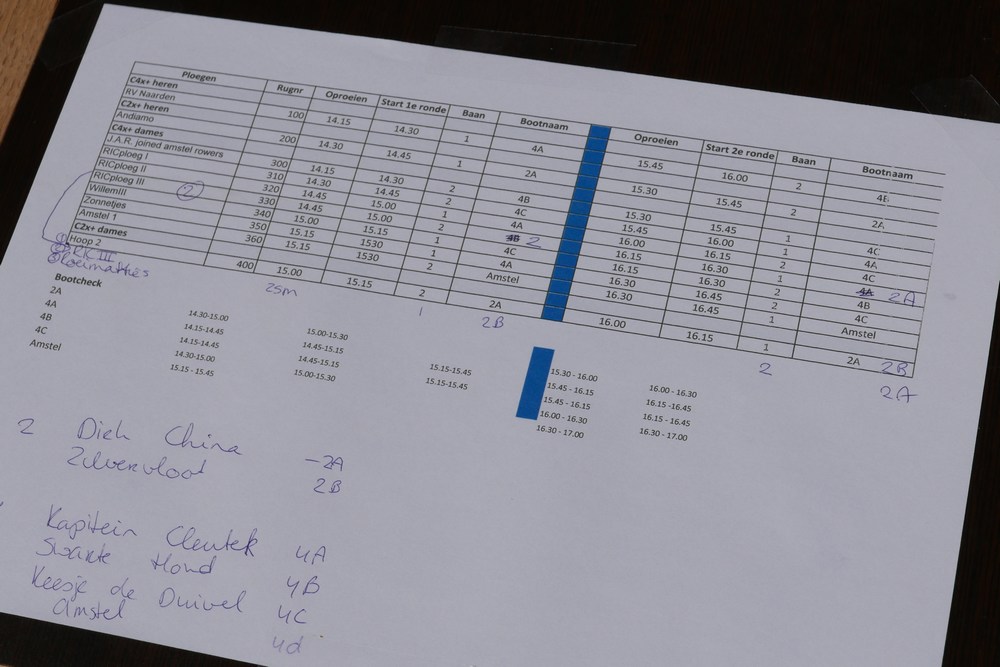 Ploegen Rugnr Oproeien Start 1e ronde Baan Bootnaam Oproeien Start 2e ronde Baan Bootnaam
C4x+ heren
RV Naarden 100 14.15 14.30 1 4A 15.45 16.00 2 4B
C2x+ heren
Andiamo 200 14.30 14.45 1 2A 15.30 15.45 2 2A
C4x+ dames
J.A.R. joined amstel rowers 300 14.15 14.30 2 4B 15.30 15.45 1 4C
RICploeg I 310 14.30 14.45 1 4C 15.45 16.00 2 4A
RICploeg II 320 14.45 15.00 2 4A 16.00 16.15 1 4C
RICploeg III 2 330 14.45 15.00 1 4B 2 16.15 16.30 2 4A 2A
WillemIII 340 15.00 15.15 2 4C 16.15 16.30 1 4B
Zonnetjes 350 15.15 1530 1 4A 16.30 16.45 2 4C
Amstel 1 360 15.15 1530 2 Amstel 16.30 16.45 1 Amstel
C2x+ dames
Hoop 2 400 15.00 15.15 2 2A 16.00 16.15 1 2A 2B
1
2 RIC III
3 Roeimatties 25m 1 2B 2 2A
Bootcheck
2A 14.30-15.00 15.00-15.30 15.30 - 16.00
4A 14.15-14.45 14.45-15.15 15.15-15.45 15.45 - 16.15 16.00 - 16.30
4B 14.15-14.45 14.45-15.15 15.15-15.45 15.45 - 16.15 16.15 -16.45
4C 14.30-15.00 15.00-15.30 16.00 - 16.30 16.15 - 16.45
Amstel 15.15 - 15.45 16.30 - 17.00 16.30 - 17.00
2 Dieh China -2A
Zilvervloot 2B
Kapitein Cleutek 4A
Swarte Hond 4B
Keesje de Duivel 4C
Amstel 4d